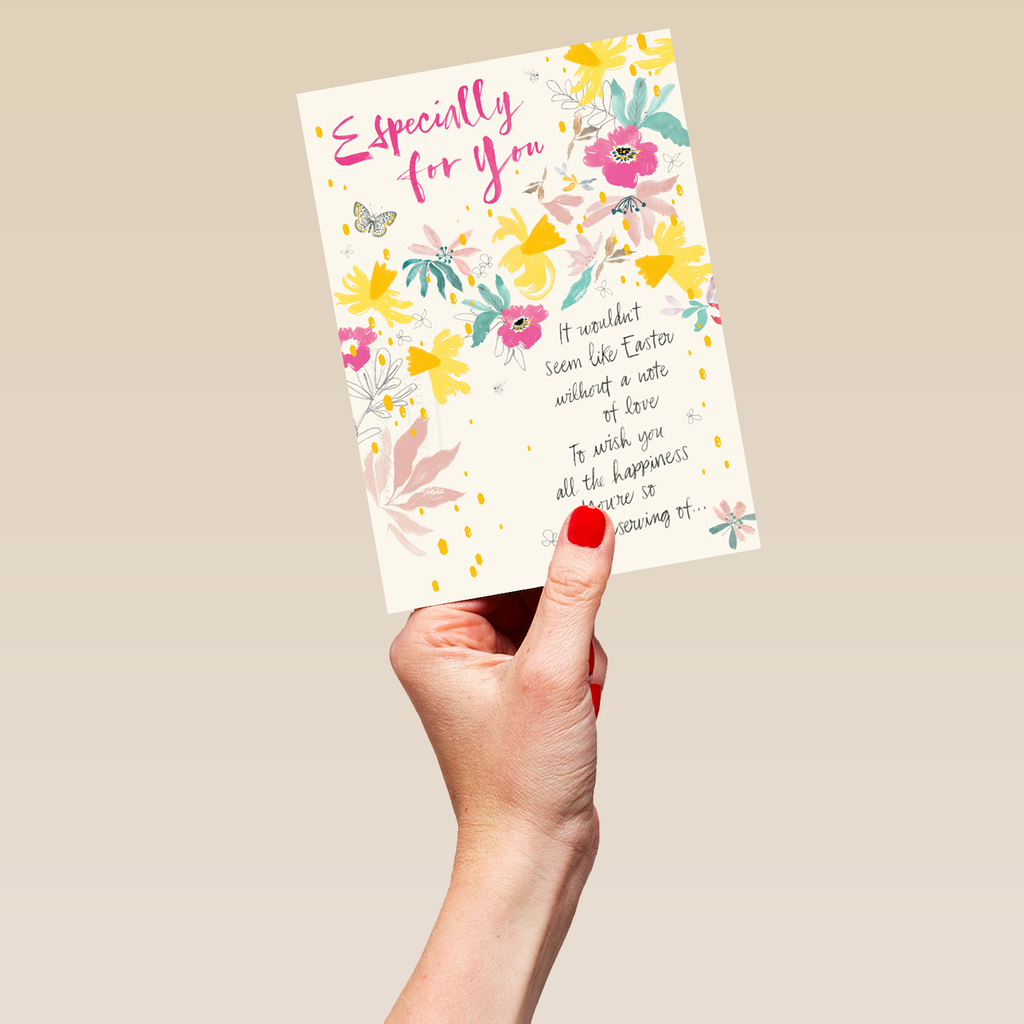 Especially
for You
It wouldn't
seem like Easter
without a note
of love
To wish you
all the happiness
you're so
serving of...